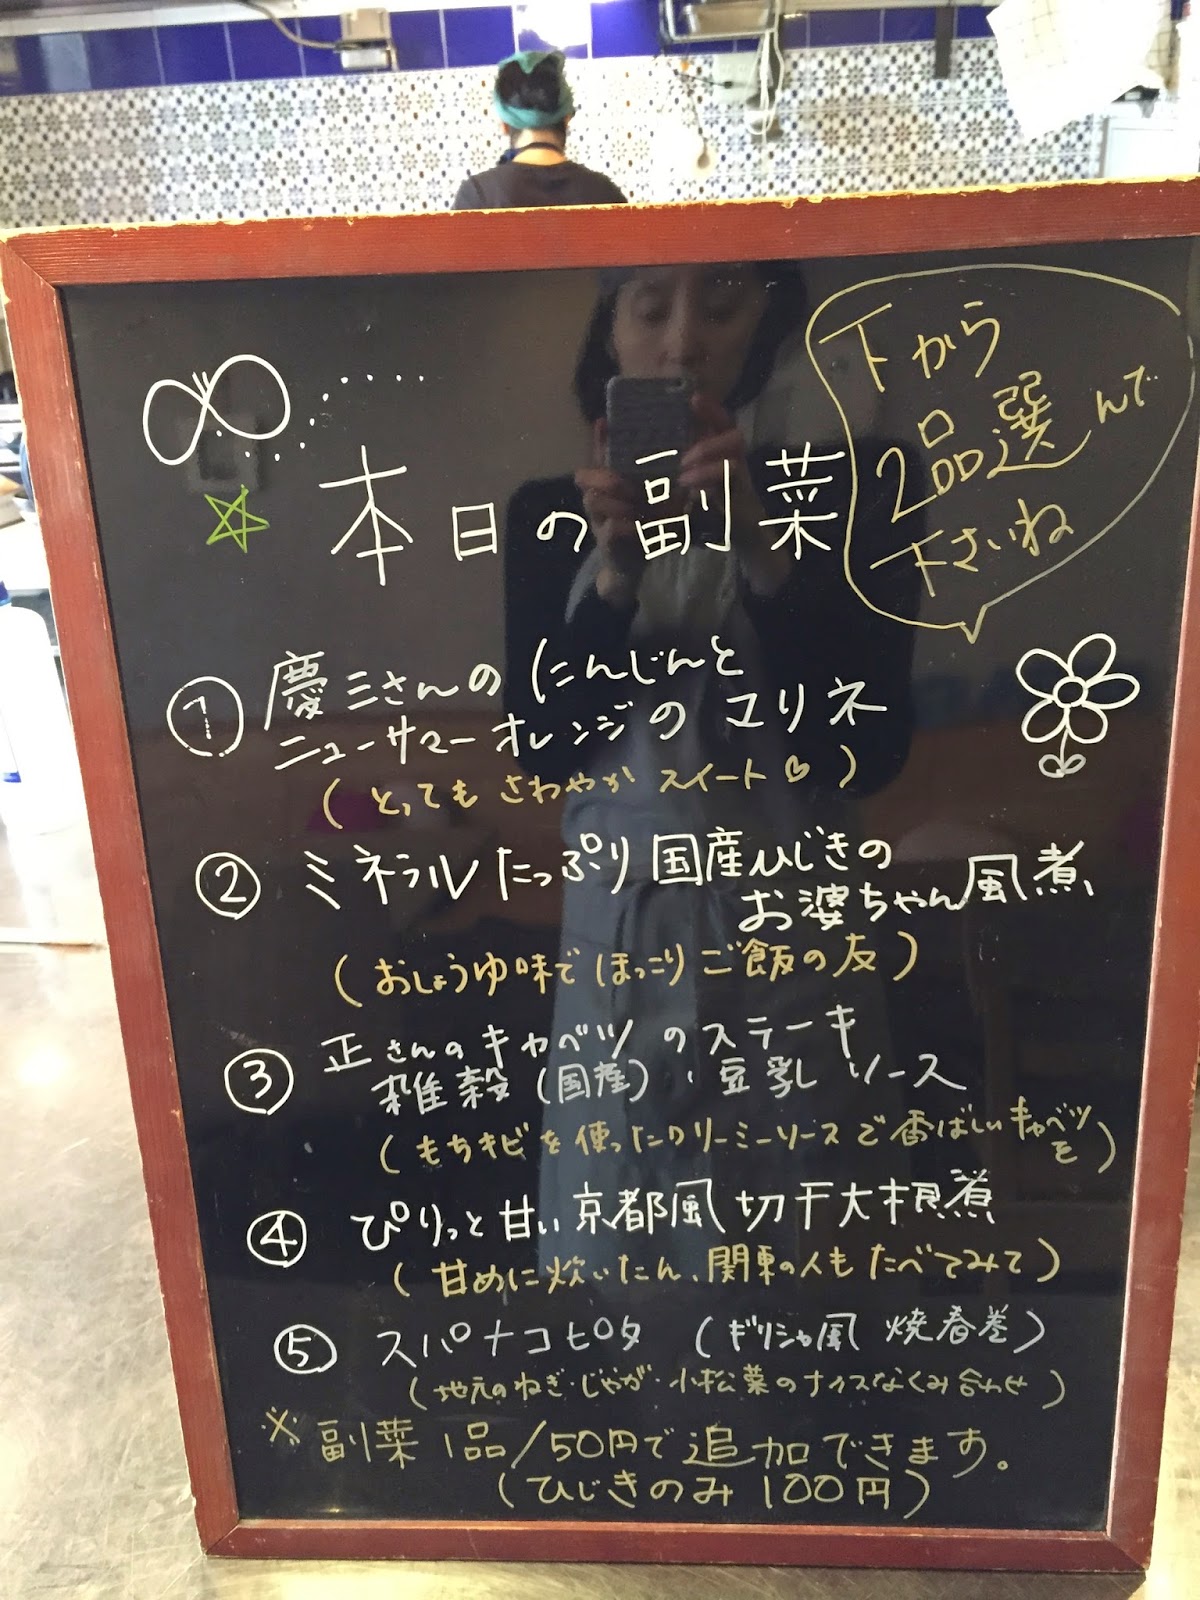 下から
2品選んで
下さいね
本日の副菜
① 慶三さんのにんじんと
ニューサマーオレンジのマリネ
(とってもさわやかスイート♡)
② ミネラルたっぷり国産ひじきの
お婆ちゃん風煮
(おしょうゆ味でほっこりご飯の友)
③ 正さんのキャベツのステーキ
雑穀(国産)・豆乳ソース
(もちキビを使ったクリーミーソースで香ばしいキャベツ
を)
④ ぴりっと甘い京都風切干大根煮
(甘めに炊いたん、関東の人もたべてみて)
⑤ スパナコピタ (ギリシャ風 焼春巻)
(地元のねぎ・じゃが・小松菜のナイスなくみ合わせ)
※副菜1品/50円で追加できます。
(ひじきのみ100円)